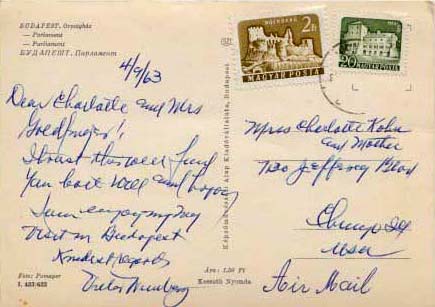 BUDAPEST, Országház
— Parlament
— Parliament
БУДАПЕШТ, Парламент
4/9/63
Dear Charlotte and Mrs
I trust this will find
You both Well and happy
I am enjoying my
Visit in Budapest
Kindest regards
Victor
Foto: Pomaper
I. 423/623
Képzőművészeti Alap Kiadóvállalata, Budapest
Ára: 1,50 Ft
Kossuth Nyomda
2 ft
MAGYAR POSTA
20
MAGYAR POSTA
Miss Charlotte Kohn
and Mother
Jeffrey Blvd
USA
Air Mail